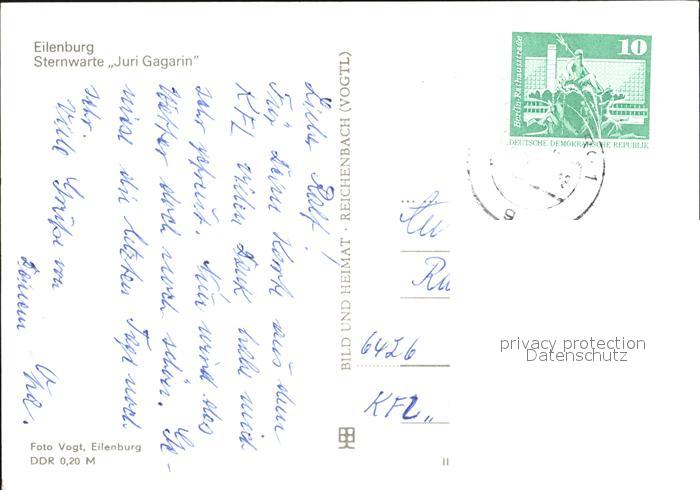 Eilenburg
Sternwarte „Juri Gagarin“
Lieber Ralf!
Für Deine Karte aus dem
KFL vielen Dank habe mich
sehr gefreut. Nun wird das
Wetter doch noch schön. Ge-
niese die letzten Tage noch
sehr.
Viele Grüße von
Deinem
Foto Vogt, Eilenburg
DDR 0,20 M
BILD UND HEIMAT · REICHENBACH (VOGTL)
Berlin-Rathausstraße
10
DEUTSCHE DEMOKRATISCHE REPUBLIK
6426
KFL „
privacy protection
Datenschutz